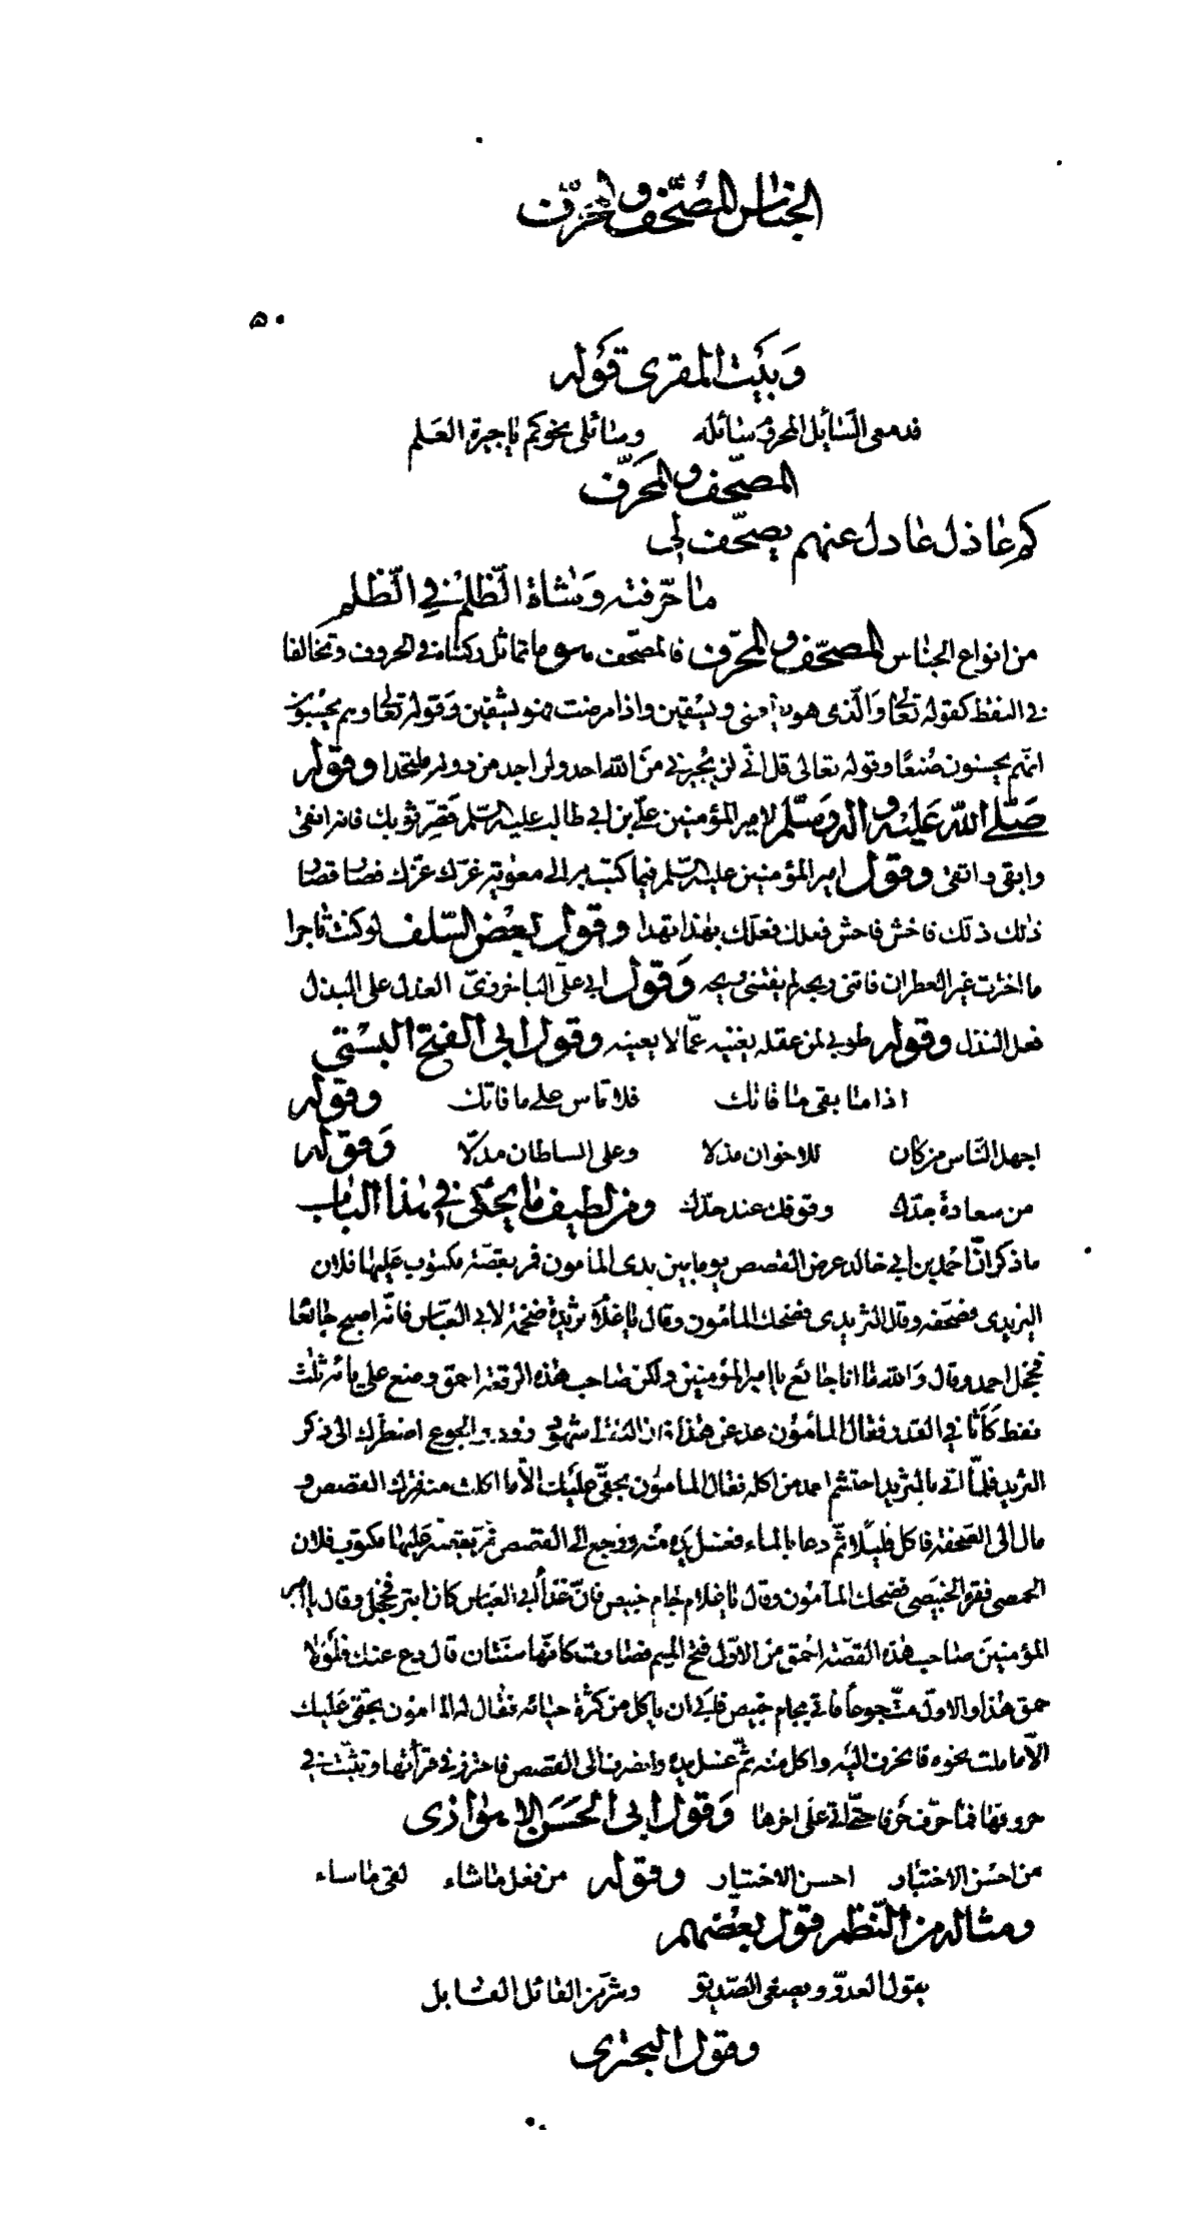 الجناس المُصَحّف والمحرّف
٥٠
وَبَيْت المقرى قَوله
قد معى السَّايل المجرى سائله وسائلى نحوكم يا جيرة العَلم
المصحّف والمحَرّف
كم عاذل عادل عنهم يصحّف لى
ما حرّفته وَشاة الظّلم فى الظّلم
من انواع الجناس المصحّف والمحرّف فالمصحّف هو ما تماثل ركناه فى الحروف وتخالفا
فى النقط كقوله تعالى وَالّذى هو يطعمنى ويسقين واذا مرضت فهو يشفين وَقوله تعالى وهم يحسبون
انّهم يحسنون صُنعًا وقوله تعالى قل انّى لن يُجيرنى منَ الله احد ولن اجد من دونه ملتحدا وقوله
صَلّى الله عَليْه وآله وَسَلّم لامير المؤمنين علىّ بن ابى طالب عليه السّلم قصّر ثوبك فانه انقى
وابقى واتقى وقول امير المؤمنين عليه السّلم فيما كتب به الى معوية غرّك عزّك فصار قصار
ذلك ذلك فاخش فاحش فعلك فعلّك بهذا تهدا وقول بعض السّلف لو كنت تاجرا
ما اخترت غير العطر ان فاتنى ربحه لم يفتنى ريحه وَقول ابى علىّ الباخرزىّ العذل على البذل
فعل النذل وقوله طوبى لمن عقله يغنيه عمّا لا يعنيه وقول ابى الفتح البستى
اذا ما بقى ما فاتك فلا تاس على ما فاتك وقوله
اجهل النّاس من كان للاخوان مذلا وعلى السلطان مدلّا وَقوله
من سعادة جدّك وقوفك عند حدّك ومن لطيف ما يحكى فى هذا الباب
ما ذكر انّ احمد بن ابى خالد عرض القصص يوما بين يدى المامون فمر بقصّة مكتوب عَليها فلان
اليزيدى فصحّفه وقال الثريدى فضحك المامون وقال يا غلام ثريدة ضخمة لابى العبّاس فانّه اصبح جائعا
فخجل احمد وقال وَالله ما انا جائع يا امير المؤمنين ولكن صاحب هذه الرقعة احمق وضع على يائه ثلث
نقط كَاثافى القدر فقال المامُون عد عن هذا الجوع اضطرّك الى ذكر
الثريد فلمّا اتى بالثريد احتشم احمد من اكله فقال المامون بحقّى عليك الّا ما اكلت منه فترك القصص و
مال الى الصّحفة فاكل قليلًا ثمّ دعا بالماء فغسل يده منه ورجع الى القصص فمر بقصّة عَليها مكتوب فلان
الحمصى فقرا الخبيصى فضحك المامُون وقال يا غلام جام خبيص فانّ غداء ابى العبّاس كان ابتر فخجل وقال يا امير
المؤمنين صاحب هذه القصّة احمق من الاوّل فتح الميم فصارت كانّها سنّتان قال دع عنك فلولا
حمق هذا والاوّل متّ جوعًا فاتى بجام خبيص فابى ان ياكل من كثرة حيائه فقال له المامون بحقّى عَليك
الّا ما ملت نحوه فانحرف اليْه واكل منه ثمّ غسل يده وانصرف الى القصص فاحترز فى قرأتها وتثبّت فى
حروفها فما حرّف حَرفا حتّى اتى على اخرها وَقول ابى الحَسَن الاهوازى
من احسَن الاختيار احسن الاختبار وقوله من فعل ما شاء لقى ما ساء
ومثاله من النّظم قول بعضهم
يقول العدوّ ويصغى الصّديق وشرّ من القائل القابل
وقول البحترى